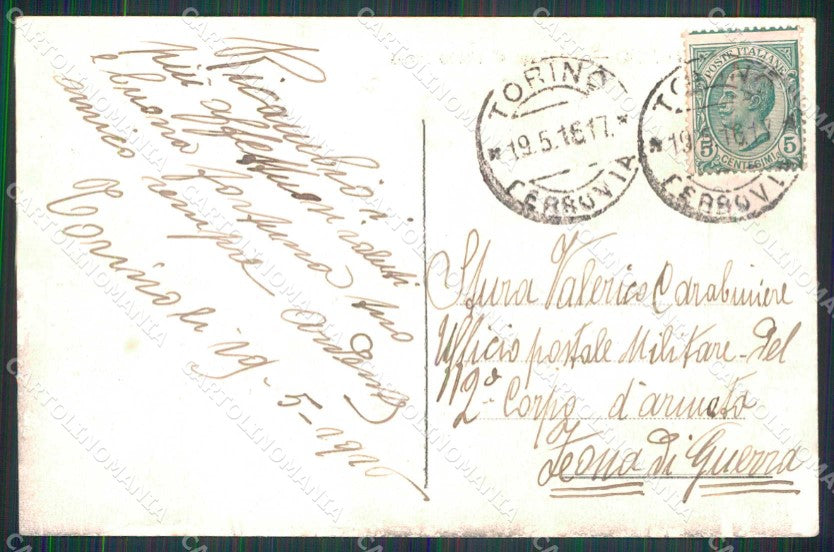 Ricambio i
più affettuosi saluti
e buona fortuna tuo
amico sempre
Torino li 19-5-1916
TORINO
19.5.16 17.
FERROVIA
TORINO
19.5.16 1
FERROVIA
POSTE ITALIANE
5 5
CENTESIMI
Stura Valerico Carabiniere
Ufficio postale Militare - del
2º Corpo d'armata
Zona di Guerra
CARTOLINOMANIA